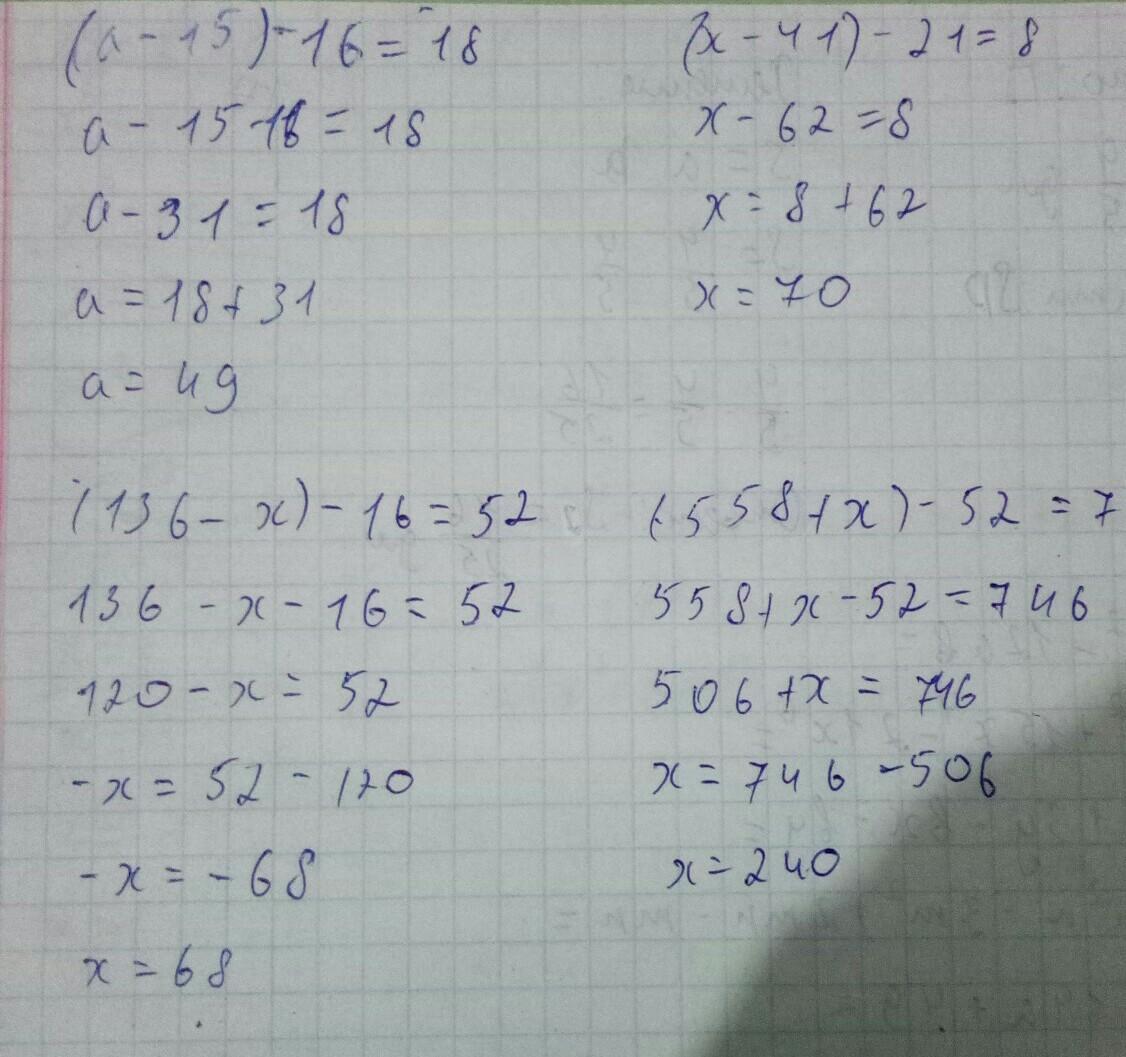 (a - 15) - 16 = 18
a - 15 - 16 = 18
a - 31 = 18
a = 18 + 31
a = 49
(x - 41) - 21 = 8
x - 62 = 8
x = 8 + 62
x = 70
(136 - x) - 16 = 52
136 - x - 16 = 52
120 - x = 52
-x = 52 - 120
-x = -68
x = 68
(558 + x) - 52 = 7
558 + x - 52 = 746
506 + x = 746
x = 746 - 506
x = 240